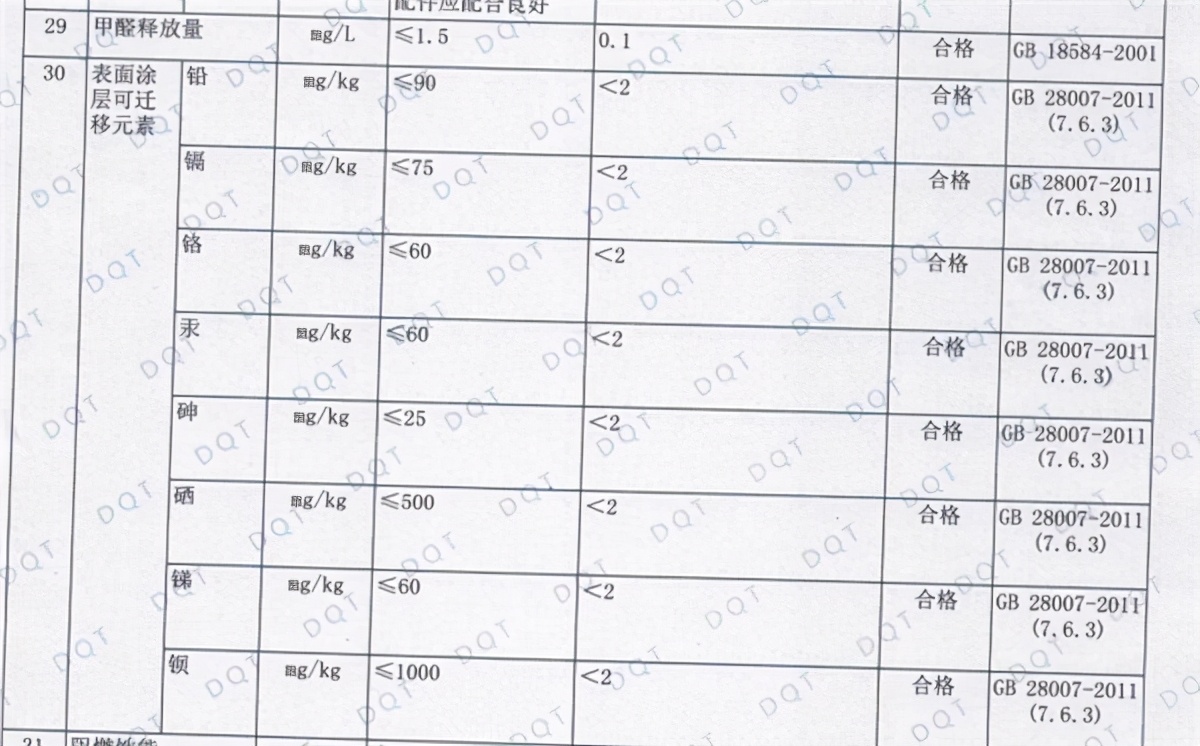 配件应配合良好
29 甲醛释放量 mg/L ≤1.5 0.1 合格 GB 18584-2001
30 表面涂层可迁移元素 铅 mg/kg ≤90 <2 合格 GB 28007-2011 (7.6.3)
镉 mg/kg ≤75 <2 合格 GB 28007-2011 (7.6.3)
铬 mg/kg ≤60 <2 合格 GB 28007-2011 (7.6.3)
汞 mg/kg ≤60 <2 合格 GB 28007-2011 (7.6.3)
砷 mg/kg ≤25 <2 合格 GB 28007-2011 (7.6.3)
硒 mg/kg ≤500 <2 合格 GB 28007-2011 (7.6.3)
锑 mg/kg ≤60 <2 合格 GB 28007-2011 (7.6.3)
钡 mg/kg ≤1000 <2 合格 GB 28007-2011 (7.6.3)
DQT